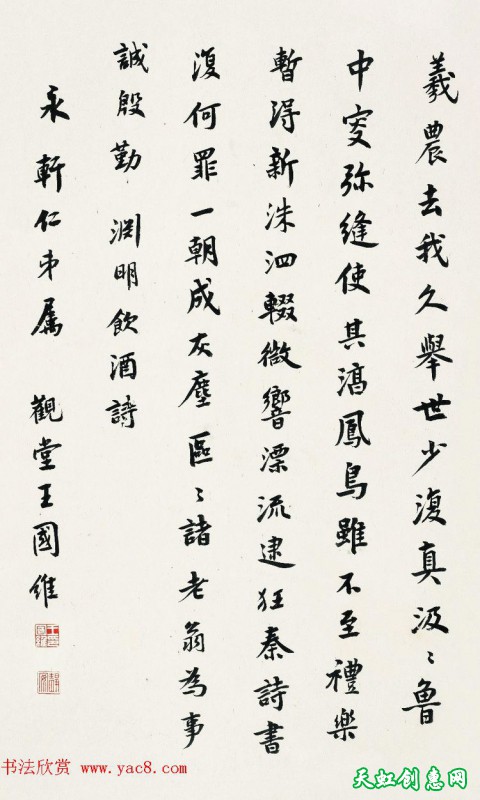 羲農去我久舉世少復真汲〻魯
中叟弥縫使其淳鳳鳥雖不至禮樂
暫得新洙泗輟微響漂流逮狂秦詩書
復何罪一朝成灰塵區〻諸老翁為事
誠殷勤 淵明飲酒詩
永軒仁弟属 觀堂王國維
书法欣赏 www.yac8.com
天虹创惠网